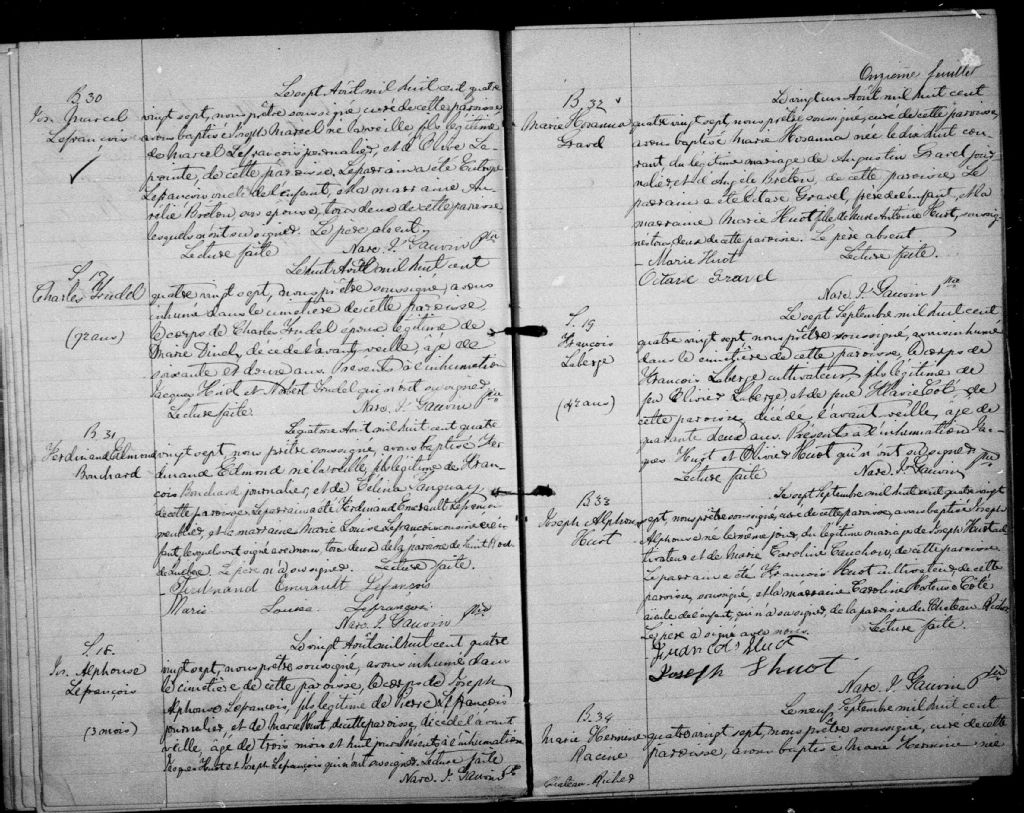 B 30
Jos. Marcel
Lefrançois
Le sept Août mil huit cent quatre
vingt sept, nous prêtre soussigné curé de cette paroisse,
avons baptisé Marcel né la veille, fils légitime
de Marcel Lefrançois journalier, et d'Olive La-
pointe, de cette paroisse. Le parrain a été
Lefrançois oncle de l'enfant, et la marraine Au-
rélie Breton, son épouse, tous deux de cette paroisse
lesquels n'ont su signer. Le père absent.
Lecture faite
Narc. J. Gauvin ptre
S. 17
Charles Trudel
(72 ans)
Le huit Août mil huit cent
quatre vingt sept, nous prêtre soussigné, avons
inhumé dans le cimetière de cette paroisse,
le corps de Charles Trudel époux légitime de
Marie, décédé l'avant veille, âgé de
soixante et douze ans. Présents à l'inhumation
Jacques Huot et Trudel qui n'ont su signer.
Lecture faite.
Narc. J. Gauvin ptre
B 31
Ferdinand Edmond
Bouchard
Le quatorze Août mil huit cent quatre
vingt sept, nous prêtre soussigné, avons baptisé Fer-
dinand Edmond né la veille, fils légitime de Fran-
çois Bouchard journalier, et de Célina
de cette paroisse. Le parrain a été Ferdinand Emerault Lefrançois
et la marraine Marie Louise Lefrançois cousine de l'en-
fant, lesquels ont signé avec nous, tous deux de la paroisse de Saint Roch
de Québec. Le père n'a su signer. Lecture faite.
Ferdinand Emerault Lefrançois
Marie Louise Lefrançois
Narc. J. Gauvin ptre
S. 18
Jos. Alphonse
Lefrançois
(3 mois)
Le vingt Août mil huit cent quatre
vingt sept, nous prêtre soussigné, avons inhumé dans
le cimetière de cette paroisse, le corps de Joseph
Alphonse Lefrançois, fils légitime de Pierre Lefrançois
journalier, et de Marie Huot, de cette paroisse, décédé l'avant
veille, âgé de trois mois et huit jours. Présents à l'inhumation
Jacques Huot et Joseph Lefrançois qui n'ont su signer. Lecture faite
Narc. J. Gauvin ptre
Onzième feuillet
B. 32
Marie Hosanna
Gravel
Le vingt un Août mil huit cent
quatre vingt sept, nous prêtre soussigné, curé de cette paroisse,
avons baptisé Marie Hosanna née le dix huit cou-
rant, du légitime mariage de Augustin Gravel jour-
nalier, et d'Angèle Breton, de cette paroisse. Le
parrain a été Octave Gravel, frère de l'enfant, et la
marraine Marie Huot fille de Antoine Huot, soussi-
gnés tous deux de cette paroisse. Le père absent
Lecture faite.
Marie Huot
Octave Gravel
Narc. J. Gauvin ptre
S. 19
François
Laberge
(42 ans)
Le sept Septembre mil huit cent
quatre vingt sept, nous prêtre soussigné, avons inhumé
dans le cimetière de cette paroisse, le corps de
François Laberge cultivateur, fils légitime de
feu Olivier Laberge, et de feue Marie Côté, de
cette paroisse, décédé l'avant veille, âgé de
quarante deux ans. Présents à l'inhumation Jac-
ques Huot et Olivier Huot qui n'ont su signer
Lecture faite
Narc. J. Gauvin ptre
B 33
Joseph Alphonse
Huot
Le sept Septembre mil huit cent quatre vingt
sept, nous prêtre soussigné, curé de cette paroisse, avons baptisé Joseph
Alphonse né le même jour, du légitime mariage de Joseph Huot cul-
tivateur et de Marie Caroline Cauchon, de cette paroisse.
Le parrain a été François Huot cultivateur de cette
paroisse, soussigné, et la marraine Caroline Côté
aïeule de l'enfant, qui n'a su signer, de la paroisse du Château Richer
Le père a signé avec nous.
Lecture faite.
Francois Huot
Joseph Huot
Narc. J. Gauvin ptre
B 34
Marie Hermine
Racine
Château-Richer
Le neuf Septembre mil huit cent
quatre vingt sept, nous prêtre soussigné, curé de cette
paroisse, avons baptisé Marie Hermine née